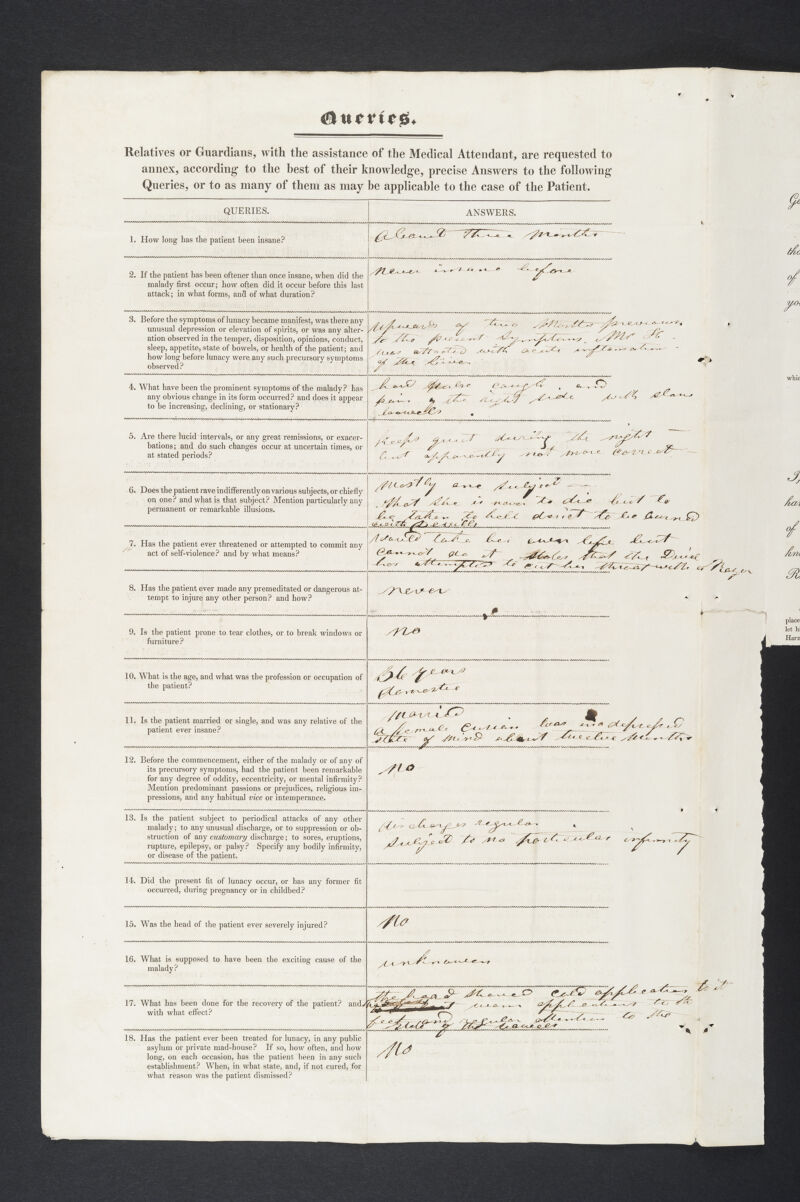 Queries.
Relatives or Guardians, with the assistance of the Medical Attendant, are requested to
annex, according to the best of their knowledge, precise Answers to the following
Queries, or to as many of them as may be applicable to the case of the Patient.
QUERIES.
ANSWERS.
1. How long has the patient been insane?
About three Months
2. If the patient has been oftener than once insane, when did the
malady first occur; how often did it occur before this last
attack; in what forms, and of what duration?
Never insane before
3. Before the symptoms of lunacy became manifest, was there any
unusual depression or elevation of spirits, or was any alter-
ation observed in the temper, disposition, opinions, conduct,
sleep, appetite, state of bowels, or health of the patient; and
how long before lunacy were any such precursory symptoms
observed?
upwards of two Months previous
to the present Symptoms. Mrs H.
was attacked with acute inflamation
of the Liver
4. What have been the prominent symptoms of the malady? has
any obvious change in its form occurred? and does it appear
to be increasing, declining, or stationary?
hard pulse cough. and
pain of the right side with slow
bowells.
5. Are there lucid intervals, or any great remissions, or exacer-
bations; and do such changes occur at uncertain times, or
at stated periods?
Keeps quiet during the night
but apparently not more correct
6. Does the patient rave indifferently on various subjects, or chiefly
on one? and what is that subject? Mention particularly any
permanent or remarkable illusions.
Mostly one subject
that she is never to die but to
be taken to hell direct to be burned
with Devills
7. Has the patient ever threatened or attempted to commit any
act of self-violence? and by what means?
Would take her own life but
cannot do it States that the Devil
has attempted to cut her throat with a Razor
8. Has the patient ever made any premeditated or dangerous at-
tempt to injure any other person? and how?
never
9. Is the patient prone to tear clothes, or to break windows or
furniture?
No
10. What is the age, and what was the profession or occupation of
the patient?
36 years
domestic
11. Is the patient married or single, and was any relative of the
patient ever insane?
Married
a female Cusian was in a depressed
state of mind about twelve Months
12. Before the commencement, either of the malady or of any of
its precursory symptoms, had the patient been remarkable
for any degree of oddity, eccentricity, or mental infirmity?
Mention predominant passions or prejudices, religious im-
pressions, and any habitual vice or intemperance.
No
13. Is the patient subject to periodical attacks of any other
malady; to any unusual discharge, or to suppression or ob-
struction of any customary discharge; to sores, eruptions,
rupture, epilepsy, or palsy? Specify any bodily infirmity,
or disease of the patient.
discharges regular
Subject to no particular infirmity
14. Did the present fit of lunacy occur, or has any former fit
occurred, during pregnancy or in childbed?
15. Was the head of the patient ever severely injured?
No
16. What is supposed to have been the exciting cause of the
malady?
unknowen
17. What has been done for the recovery of the patient? and
with what effect?
the head Shaved cold application to it
warm applications to the
feet and regular attention to the
state of the bowells
18. Has the patient ever been treated for lunacy, in any public
asylum or private mad-house? If so, how often, and how
long, on each occasion, has the patient been in any such
establishment? When, in what state, and, if not cured, for
what reason was the patient dismissed?
No
place
let h